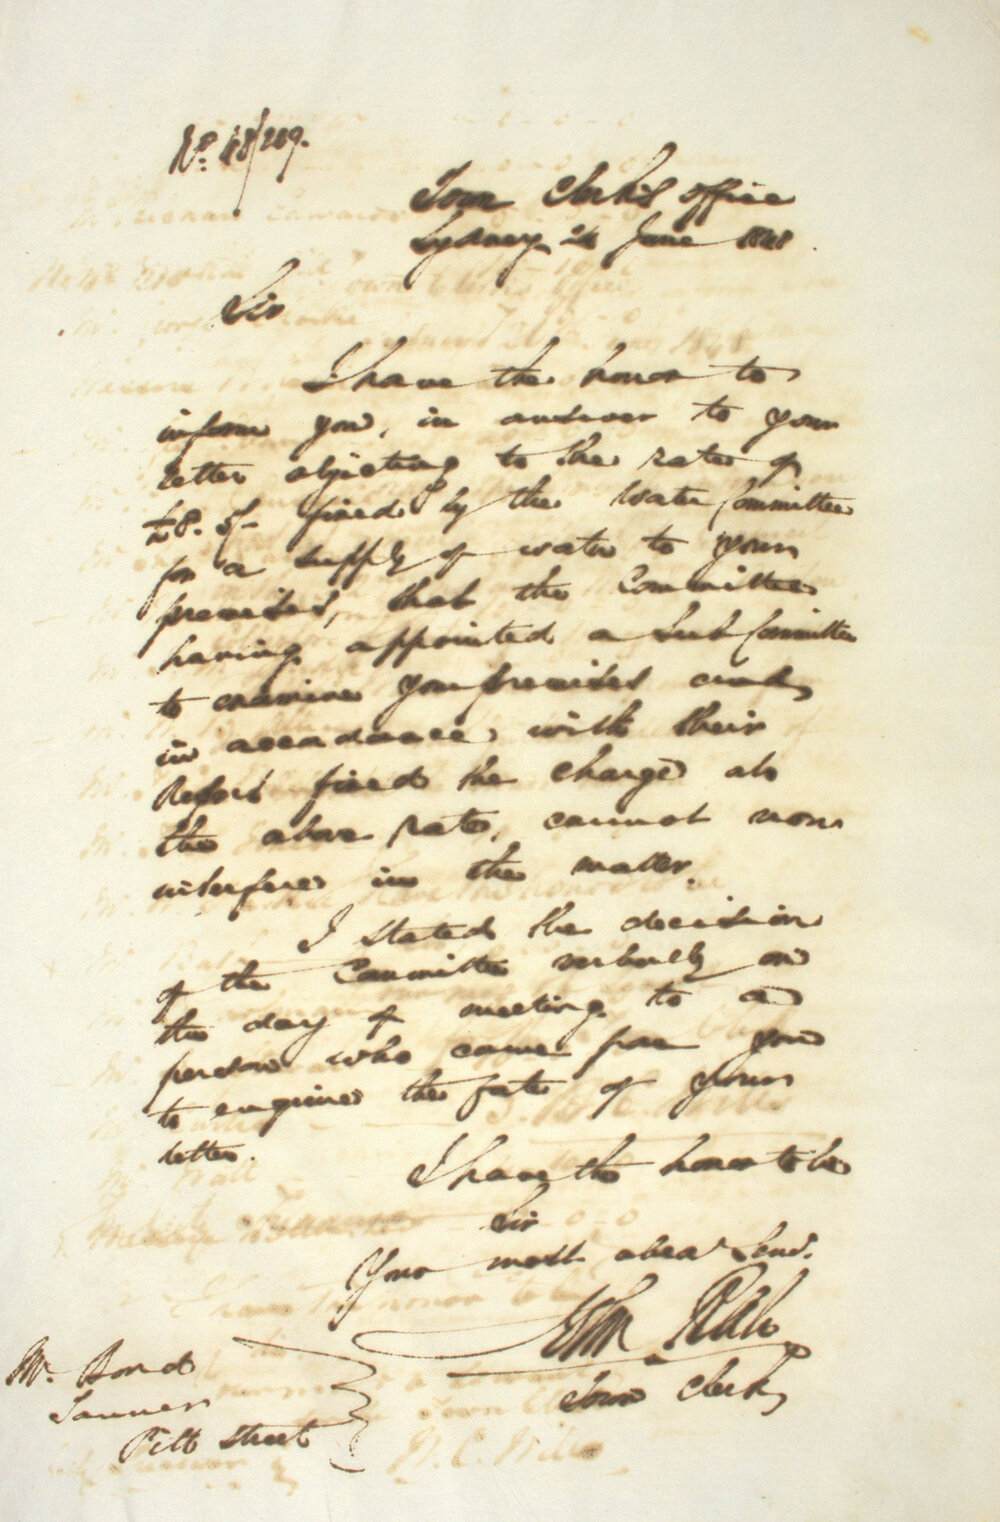 No. 48/209.
Town Clerk's Office
Sydney 24 June 1848
Sir
I have the honor to
inform you, in answer to your
letter objecting to the rate of
£8. 5/- fixed by the Water Committee
for a supply of water to your
premises, that the Committee
having appointed a Sub Committee
to examine your premises and
in accordance with their
Report fixed the charge at
the above rate, cannot now
interfere in the matter.
I stated the decision
of the Committee verbally on
the day of meeting to a
person who came from you
to enquire the fate of your
letter.
I have the honor to be
Sir
Your most obedt Servt.
John Rule
Town Clerk
Mr. Bond
Tanner
Pitt Street